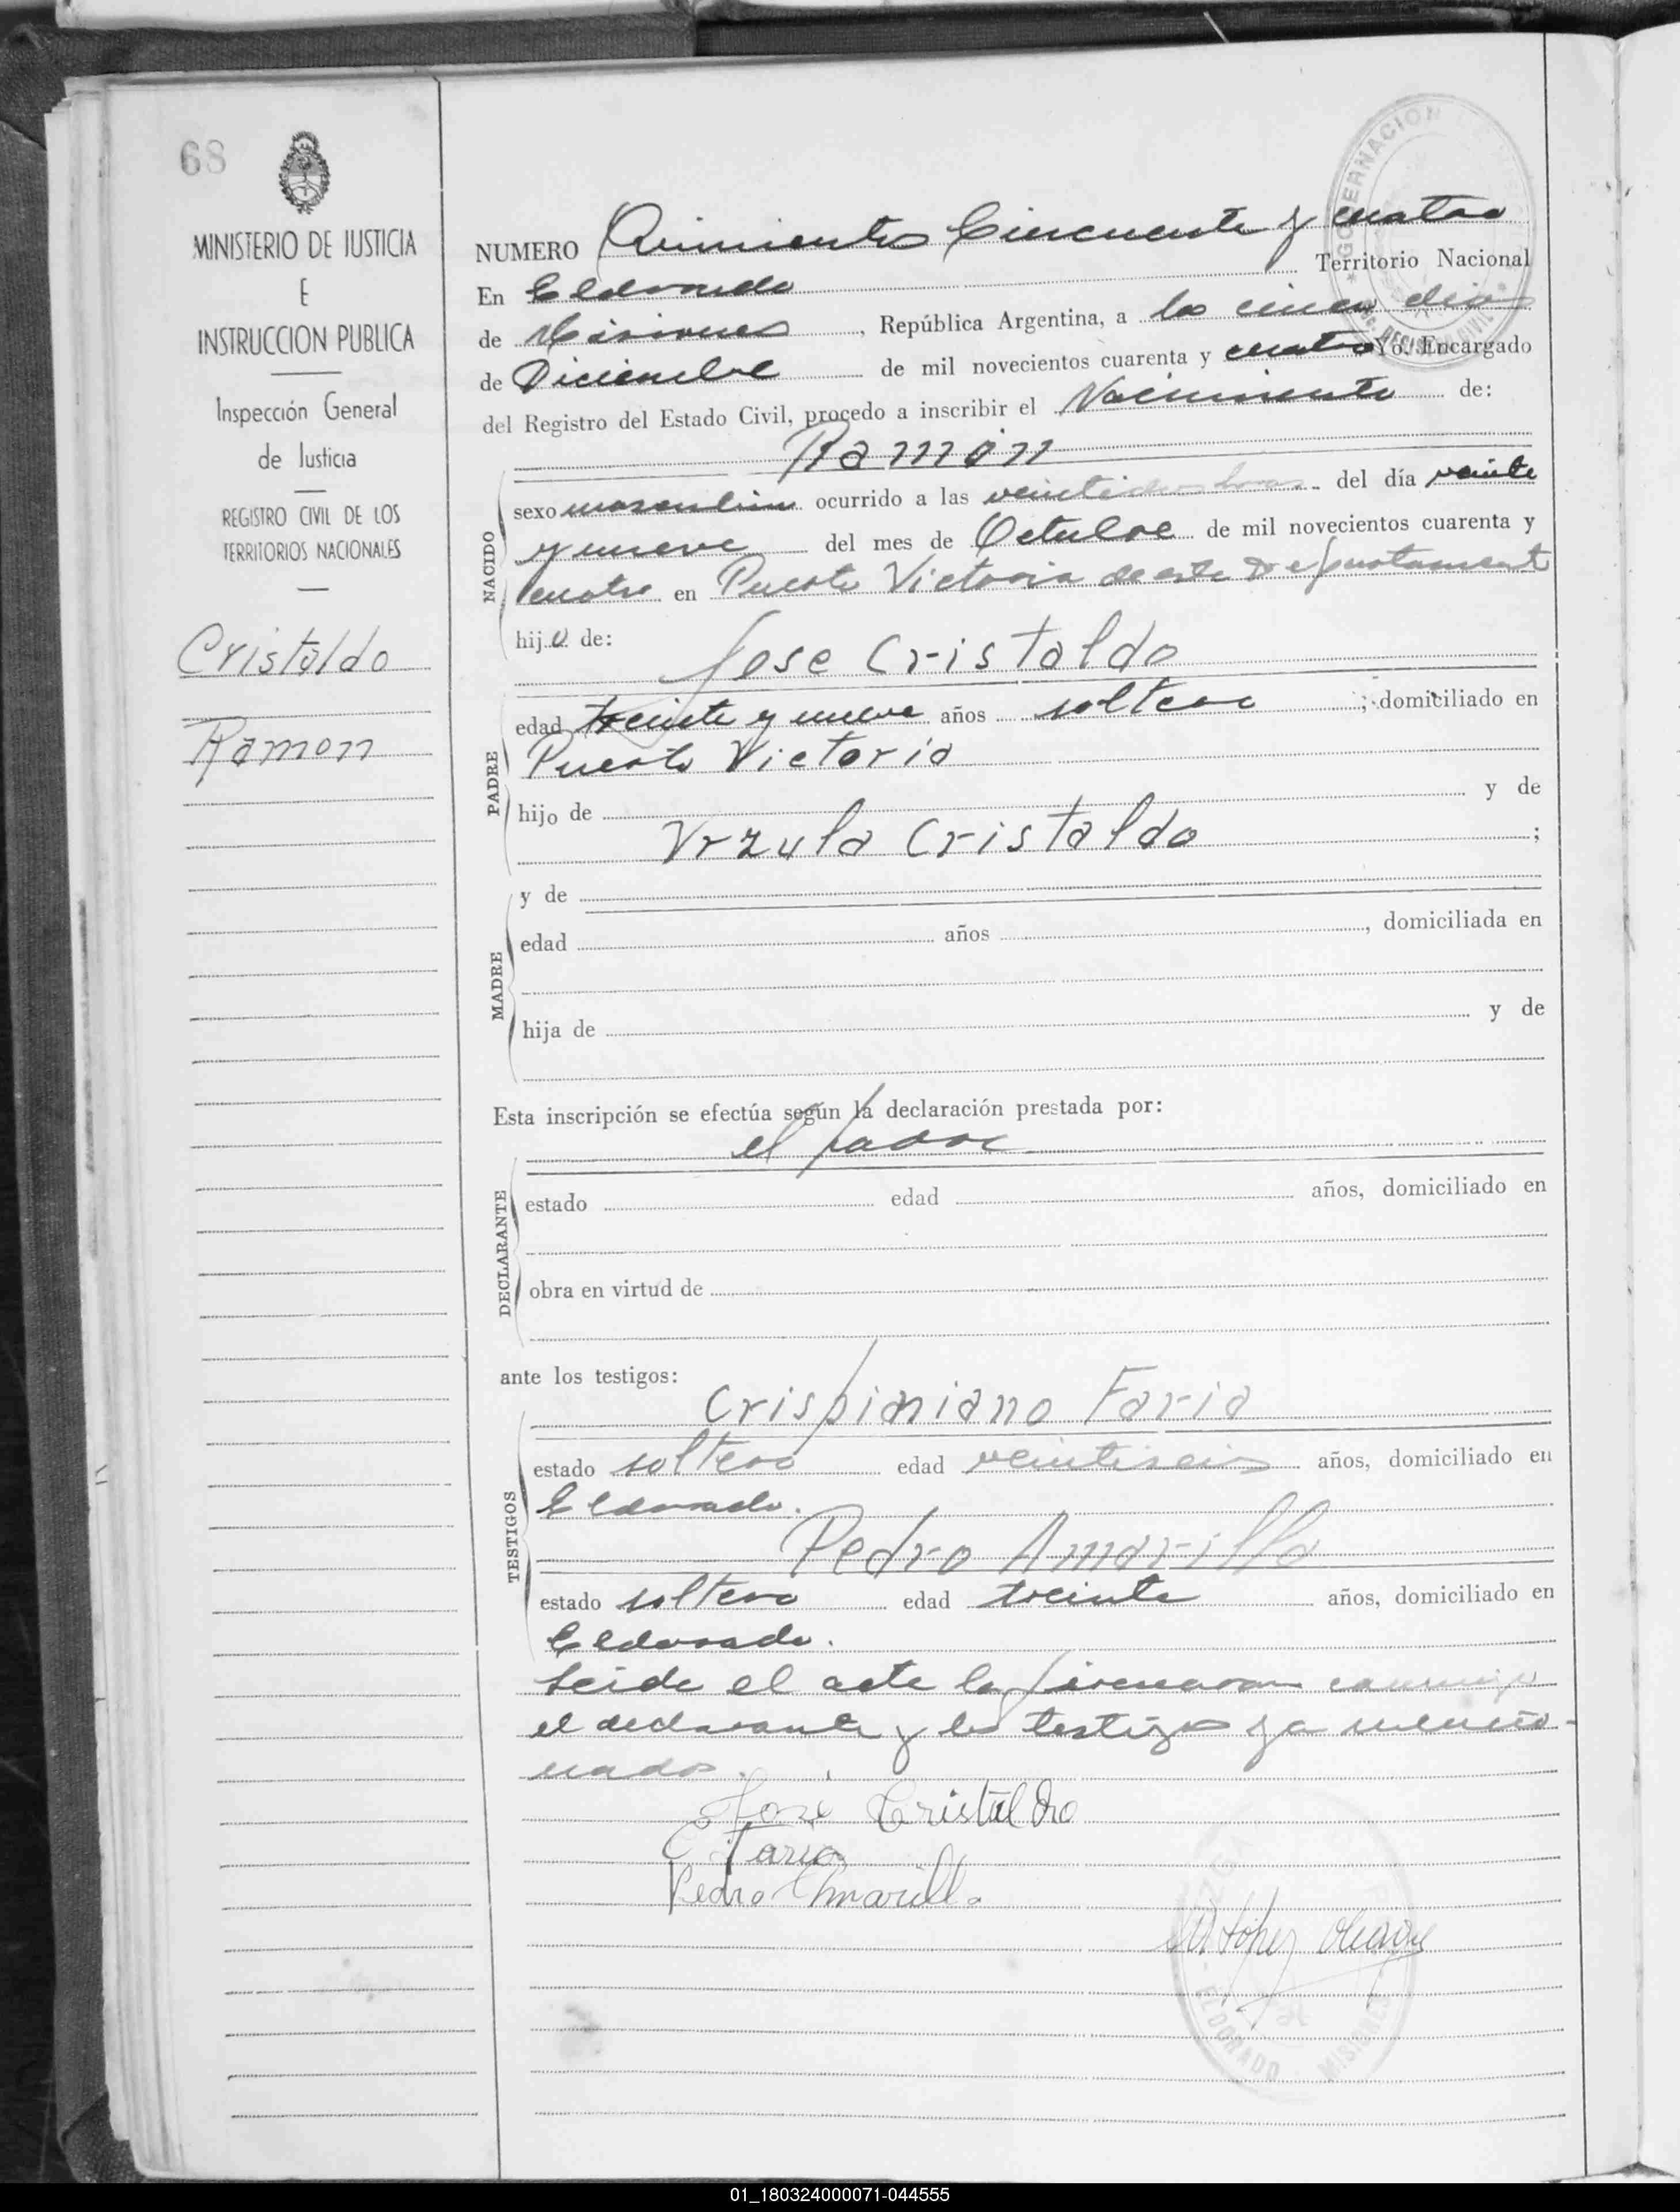 68
MINISTERIO DE JUSTICIA
E
INSTRUCCION PUBLICA
Inspección General
de Justicia
REGISTRO CIVIL DE LOS
TERRITORIOS NACIONALES
Cristaldo
Ramon
NUMERO Quinientos Cincuenta y cuatro
En Eldorado Territorio Nacional
de Misiones, República Argentina, a los cinco dias
de Diciembre de mil novecientos cuarenta y cuatro Yo. Encargado
del Registro del Estado Civil, procedo a inscribir el Nacimiento de:
Ramón
NACIDO
sexo masculino ocurrido a las veintidos horas del día veinte
y nueve del mes de Octubre de mil novecientos cuarenta y
cuatro en Puerto Victoria de este Departamento
hijo de:
Jose Cristaldo
PADRE
edad treinta y nueve años soltero ; domiciliado en
Puerto Victoria
hijo de y de
Vrzula Cristaldo ;
MADRE
y de
edad años , domiciliada en
hija de y de
Esta inscripción se efectúa según la declaración prestada por:
el padre
DECLARANTE
estado edad años, domiciliado en
obra en virtud de
ante los testigos:
Crispiniano Faria
TESTIGOS
estado soltero edad veintiseis años, domiciliado en
Eldorado.
Pedro Amarilla
estado soltero edad treinta años, domiciliado en
Eldorado.
Leida el acta la firmaron conmigo
el declarante y los testigos ya mencio-
nados.
José Cristaldo
C Faria
Pedro Amarilla
López
GOBERNACION
REGISTRO CIVIL
ELDORADO MISIONES
01_180324000071-044555